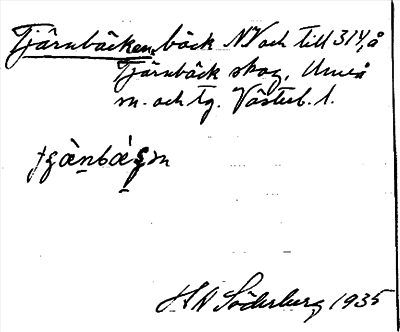 Tjärnbäcken, bäck NV och till 314, å
Tjärnbäck skog, Umeå
m. och tg. Västerb. l.
H N Söderberg 1935